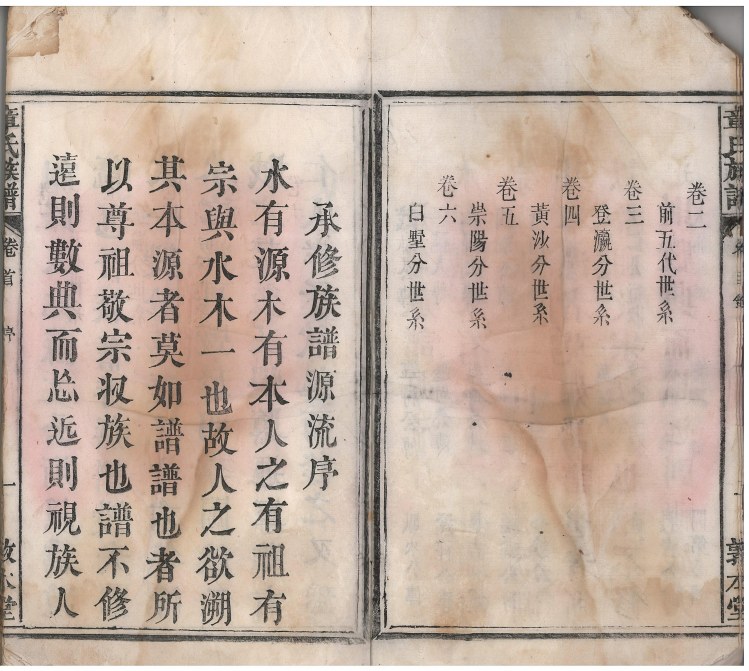 童氏族譜
卷二
前五代世系
卷三
登瀛分世系
卷四
黃沙分世系
卷五
崇陽分世系
卷六
白墅分世系
承修族譜源流序
水有源木有本人之有祖有
宗與水木一也故人之欲溯
其本源者莫如譜譜也者所
以尊祖敬宗収族也譜不修
遠則數典而忘近則視族人
童氏族譜
卷首
序
一
敦本堂